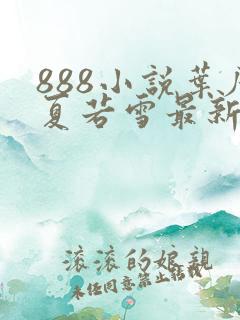 888小説葉
夏若雪最新
滚滚的娘親
未经同意禁止转载